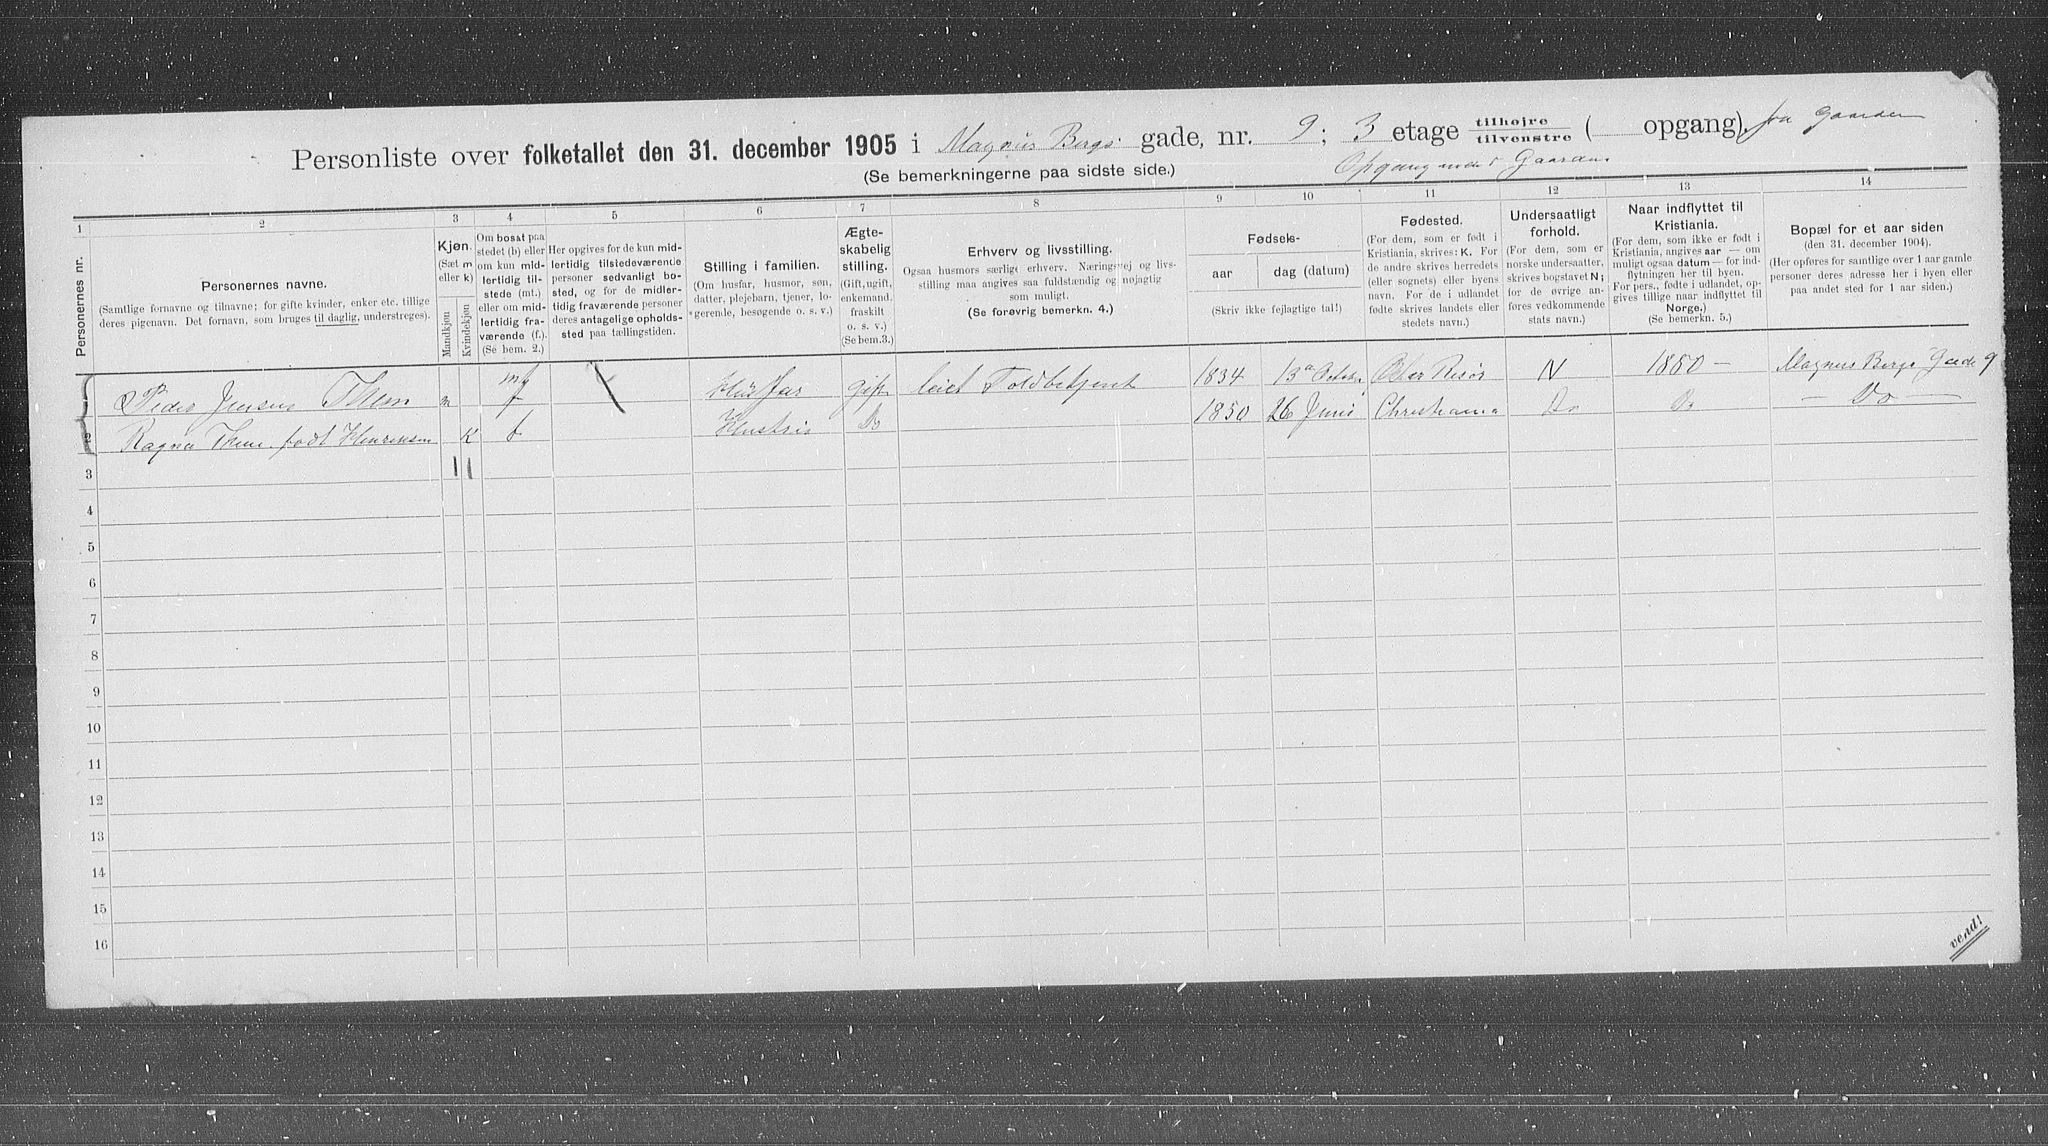 Personliste over folketallet den 31. december 1905 i Magnus Bergs gade, nr. 9; 3 etage tilhøjre / tilvenstre ( opgang). fra Gaarden
(Se bemerkningerne paa sidste side.) Opgang Gaarden
1 2 3 4 5 6 7 8 9 10 11 12 13 14
Personernes nr.
Personernes navne.
(Samtlige fornavne og tilnavne; for gifte kvinder, enker etc. tillige
deres pigenavn. Det fornavn, som bruges til daglig, understreges).
Kjøn.
(Sæt m
eller k)
Mandkjøn
Kvindekjøn
Om bosat paa
stedet (b) eller
om kun mid-
lertidig til-
stede (mt.)
eller om mid-
lertidig fra-
værende (f.).
(Se bem. 2.)
Her opgives for de kun mid-
lertidig tilstedeværende
personer sedvanligt bo-
sted, og for de midler-
tidig fraværende personer
deres antagelige opholds-
sted paa tællingstiden.
Stilling i familien.
(Om husfar, husmor, søn,
datter, plejebarn, tjener, lo-
gerende, besøgende o. s. v.)
Ægte-
skabelig
stilling.
(Gift, ugift,
enkemand,
fraskilt
o. s. v.)
(Se bem.3.)
Erhverv og livsstilling.
Ogsaa husmors særlige erhverv. Næringsvej og livs-
stilling maa angives saa fuldstændig og nøjagtig
som muligt.
(Se forøvrig bemerkn. 4.)
Fødsels-
aar
dag (datum)
(Skriv ikke fejlagtige tal!)
Fødested.
(For dem, som er født i
Kristiania, skrives: K. For
de andre skrives herredets
(eller sognets) eller byens
navn. For de i udlandet
fødte skrives landets eller
stedets navn.)
Undersaatligt
forhold.
(For dem, som er
norske undersaatter,
skrives bogstavet N;
for de øvrige an-
føres vedkommende
stats navn.)
Naar indflyttet til
Kristiania.
(For dem, som ikke er født i
Kristiania, angives aar — om
muligt ogsaa datum — for ind-
flytningen her til byen.
For pers., fødte i udlandet, op-
gives tillige naar indflyttet til
Norge.)
(Se bemerkn. 5.)
Bopæl for et aar siden
(den 31. december 1904).
(Her opføres for samtlige over 1 aar gamle
personer deres adresse her i byen eller
paa andet sted for 1 aar siden.)
1 Peder Jensen Them m Husfar gift Toldbetjent 1834 13 Øster Risør N 1850 — Magnus Bergs Gade 9
2 Ragna Them født Henriksen K b Hustru Do 1850 26 Juni Christiania Do Do — Do —
3
4
5
6
7
8
9
10
11
12
13
14
15
16
vend!